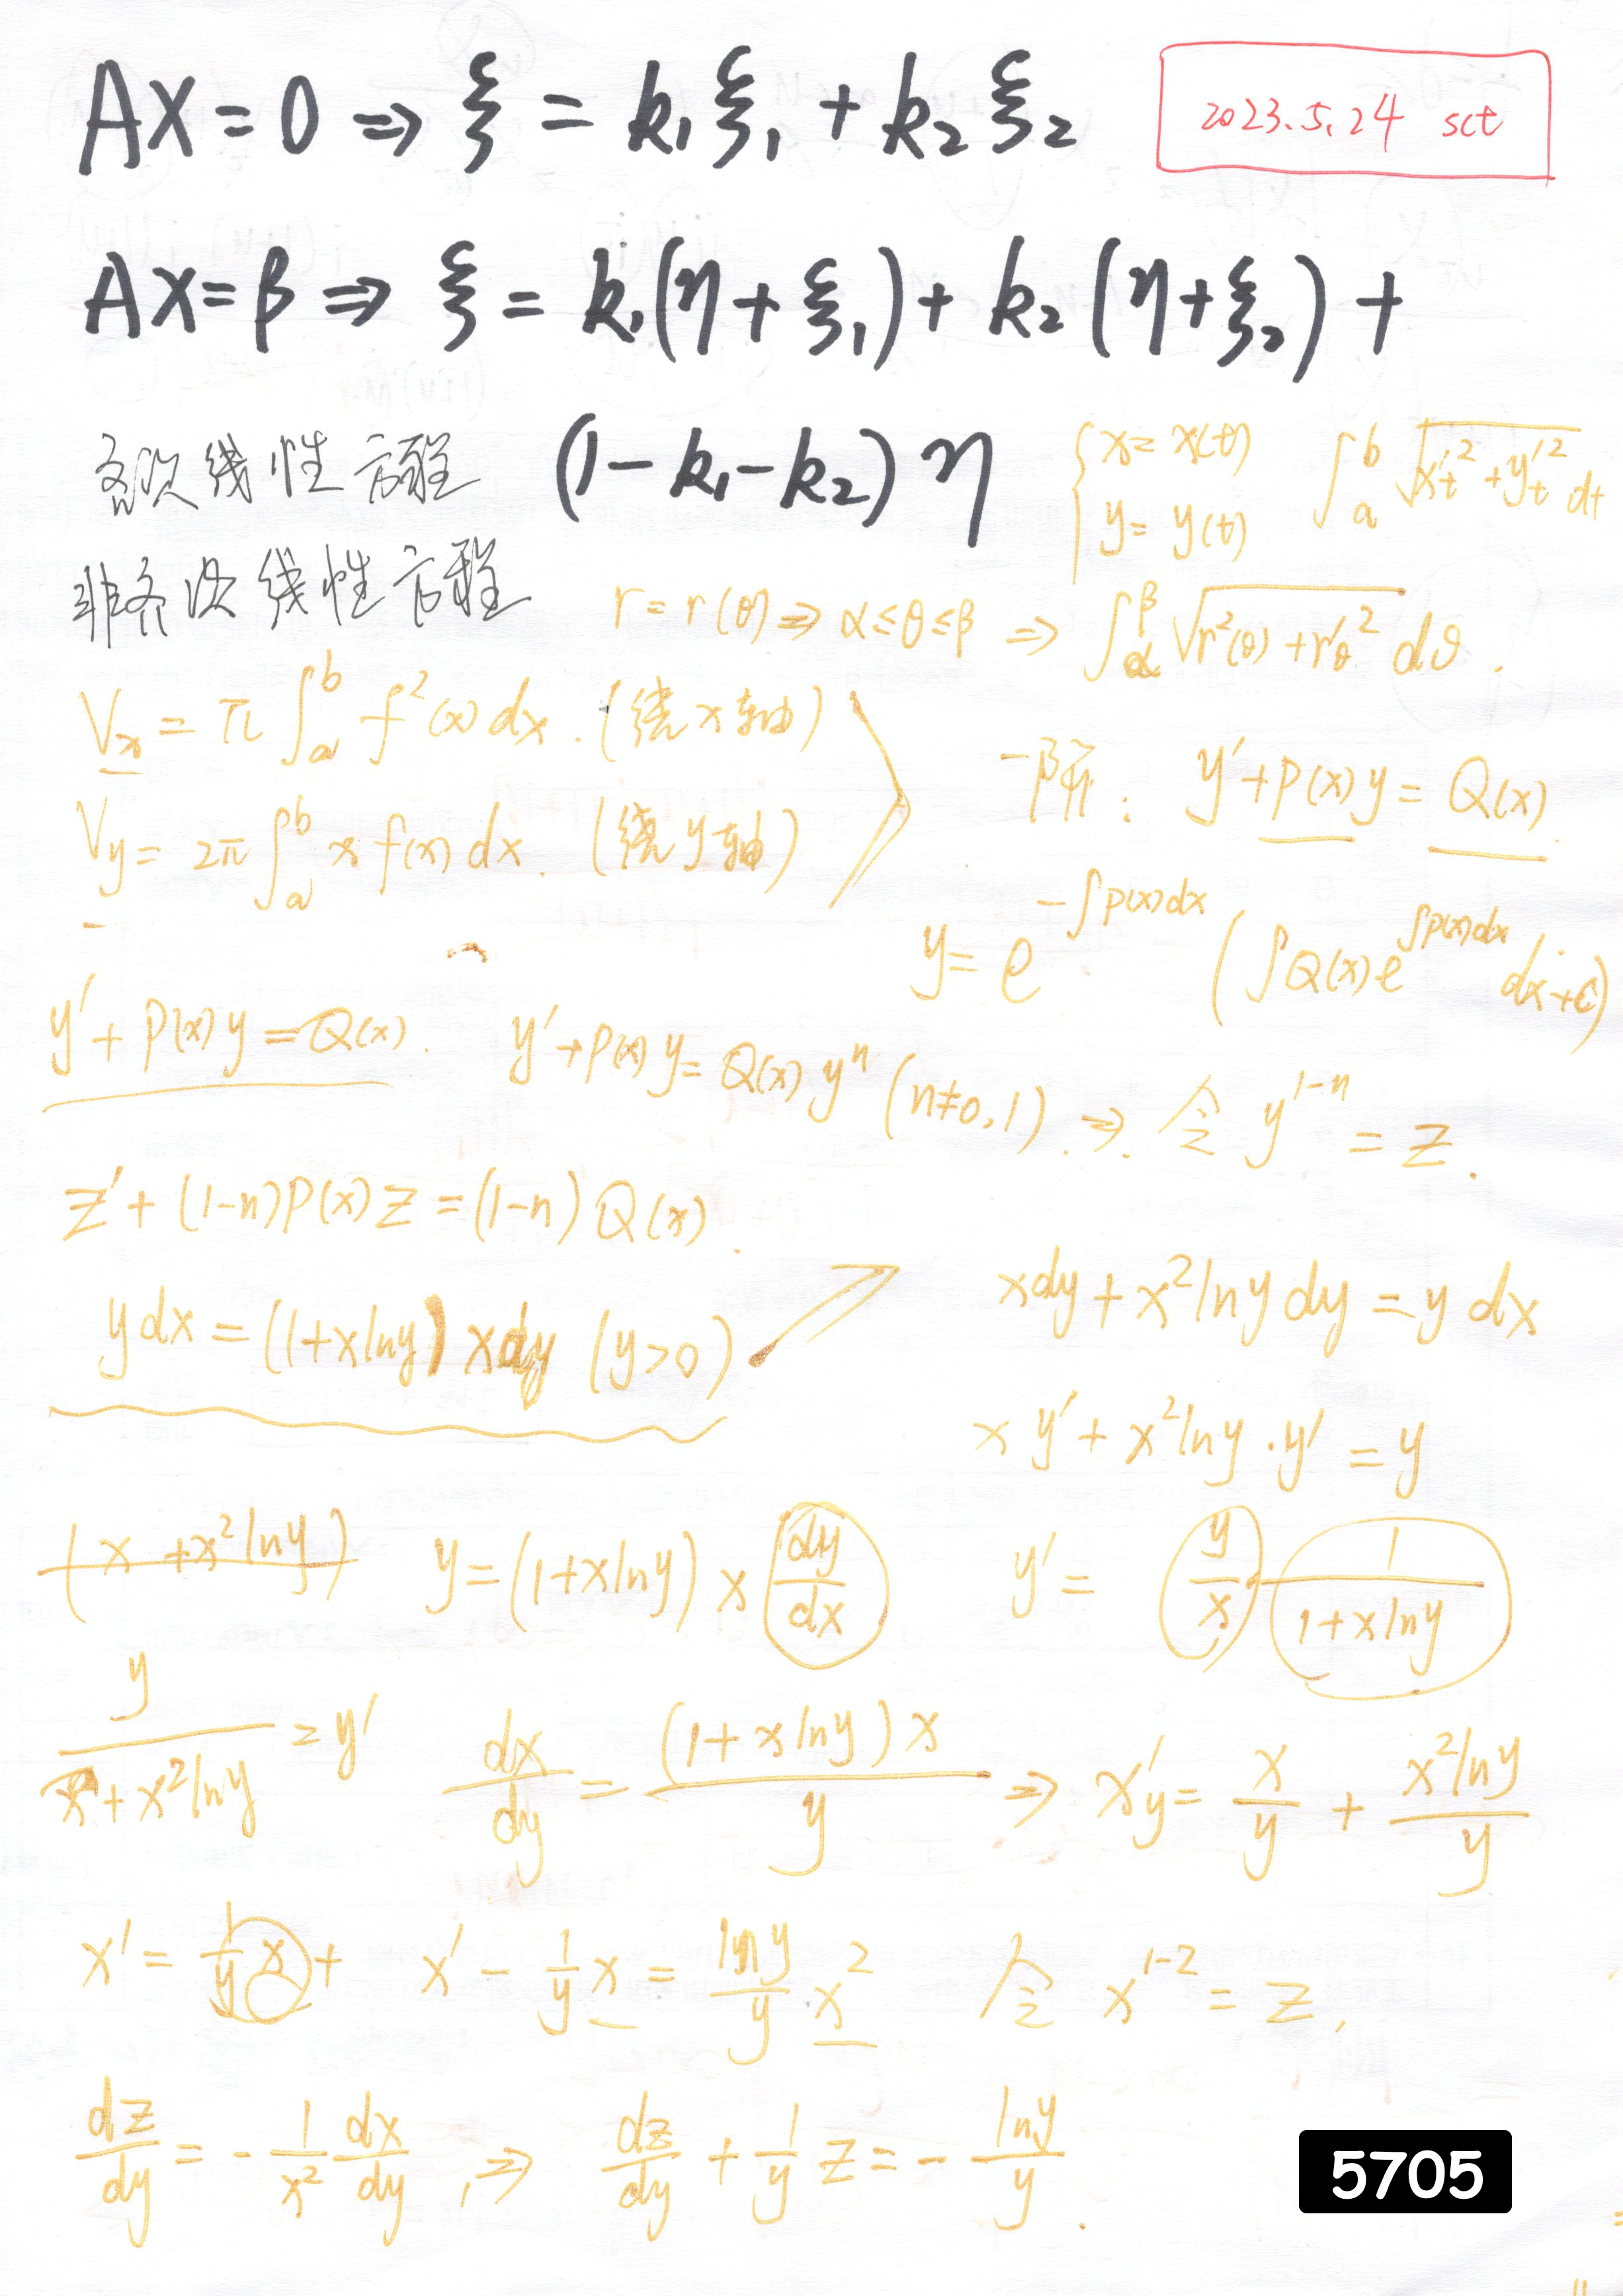 AX = 0 ⇒ ξ = k₁ξ₁ + k₂ξ₂
2023.5.24 sct
AX = β ⇒ ξ = k₁(η + ξ₁) + k₂(η + ξ₂) +
(1 - k₁ - k₂)η
齐次线性方程
非齐次线性方程
{ x = x(t)
y = y(t)
∫ₐᵇ √(x′ₜ² + y′ₜ²) dt
r = r(θ) ⇒ α ≤ θ ≤ β ⇒ ∫_α^β √(r²(θ) + r′_θ²) dθ.
Vₓ = π∫ₐᵇ f²(x) dx. (绕x轴)
V_y = 2π∫ₐᵇ x f(x) dx. (绕y轴)
一阶: y′ + P(x)y = Q(x)
y = e^{-∫P(x)dx} (∫Q(x)e^{∫P(x)dx} dx + C)
y′ + P(x)y = Q(x). y′ + P(x)y = Q(x)yⁿ (n≠0,1). ⇒. 令 y^{1-n} = z.
z′ + (1-n)P(x)z = (1-n)Q(x).
y dx = (1 + x ln y) x dy (y>0)
x dy + x² ln y dy = y dx
x y′ + x² ln y · y′ = y
(x + x² ln y) y = (1 + x ln y) x dy/dx y′ = y/x · 1/(1 + x ln y)
y/(x + x² ln y) = y′ dx/dy = (1 + x ln y)x/y ⇒ x′_y = x/y + x² ln y/y
x′ = 1/y x + x′ - 1/y x = ln y/y x² 令 x^{1-2} = z,
dz/dy = - 1/x² dx/dy, ⇒ dz/dy + 1/y z = - ln y/y.
5705